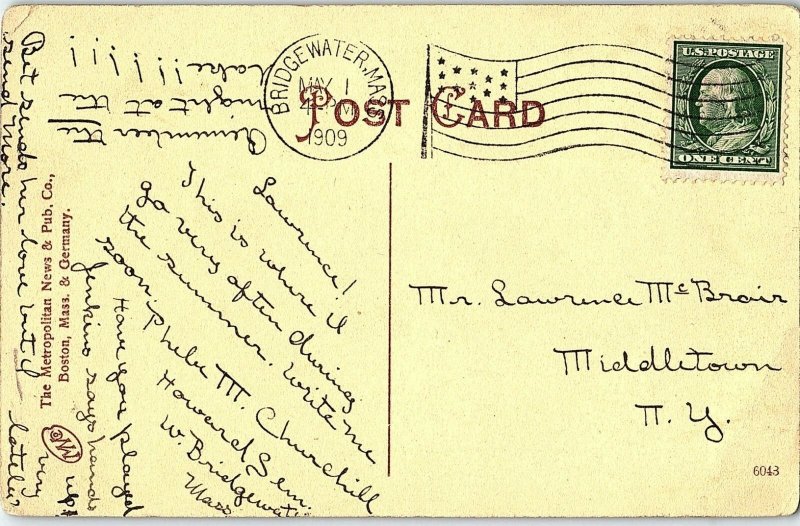 POST CARD
BRIDGEWATER, MASS.
MAY 1
1909
U.S. POSTAGE
ONE CENT
Lawrence!
This is where I
go very often during
the summer. Write me
soon. Phebe M. Churchill
Howard Sem.
W. Bridgewater
Mass.
Have you played
very
lately?
Jenkins says hands
up!
Bet sends her love but I
send more.
Remember the
night at the
lake
! ! ! ! ! !
Mr. Lawrence McBrair
Middletown
N. Y.
The Metropolitan News & Pub. Co.,
Boston, Mass. & Germany.
6043